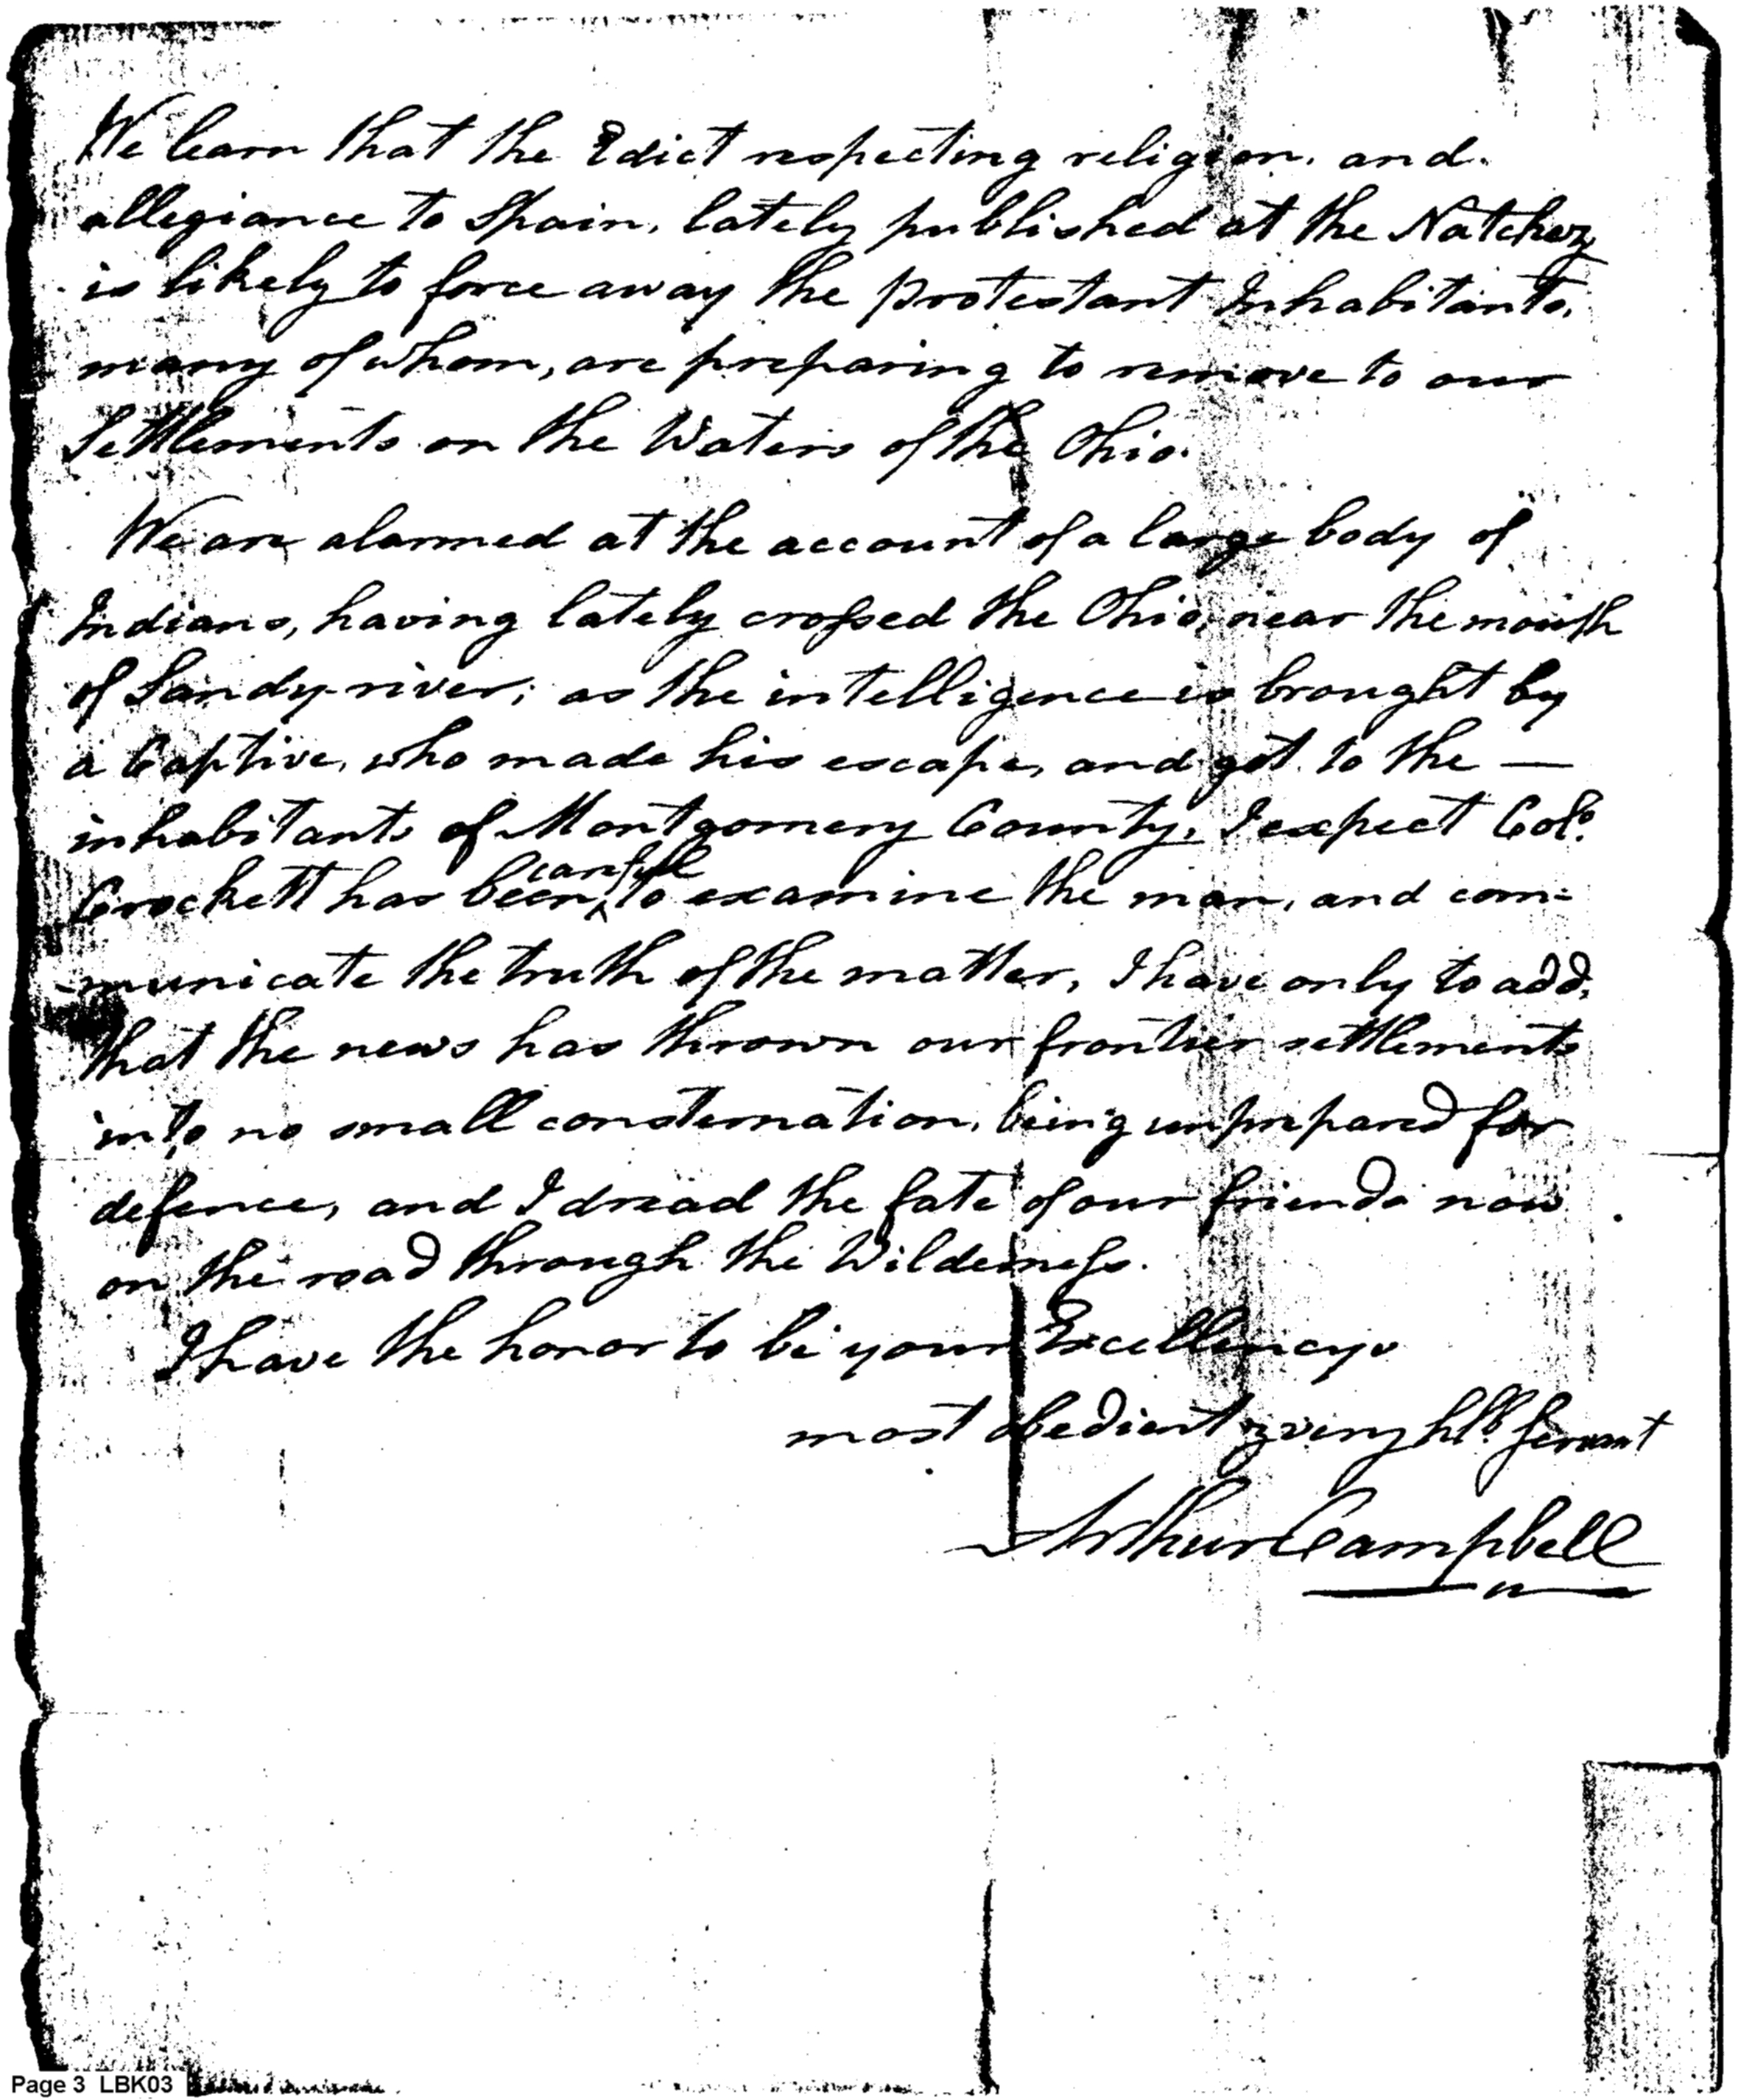 We learn that the Edict respecting religion, and
allegiance to Spain, lately published at the Natchez
is likely to force away the protestant Inhabitants,
many of whom, are preparing to remove to our
Settlements on the Waters of the Ohio.
We are alarmed at the account of a large body of
Indians, having lately crossed the Ohio, near the mouth
of Sandy-river; as the intelligence is brought by
a Captive, who made his escape, and got to the —
inhabitants of Montgomery County, I expect Colo.
careful
Crockett has been, to examine the man, and com=
-municate the truth of the matter, I have only to add,
that the news has thrown our frontier settlements
into no small consternation, being unprepared for
defence, and I dread the fate of our friends now
on the road through the Wilderness.
I have the honor to be your Excellencys
most obedient & very hble servant
Arthur Campbell
Page 3 LBK03